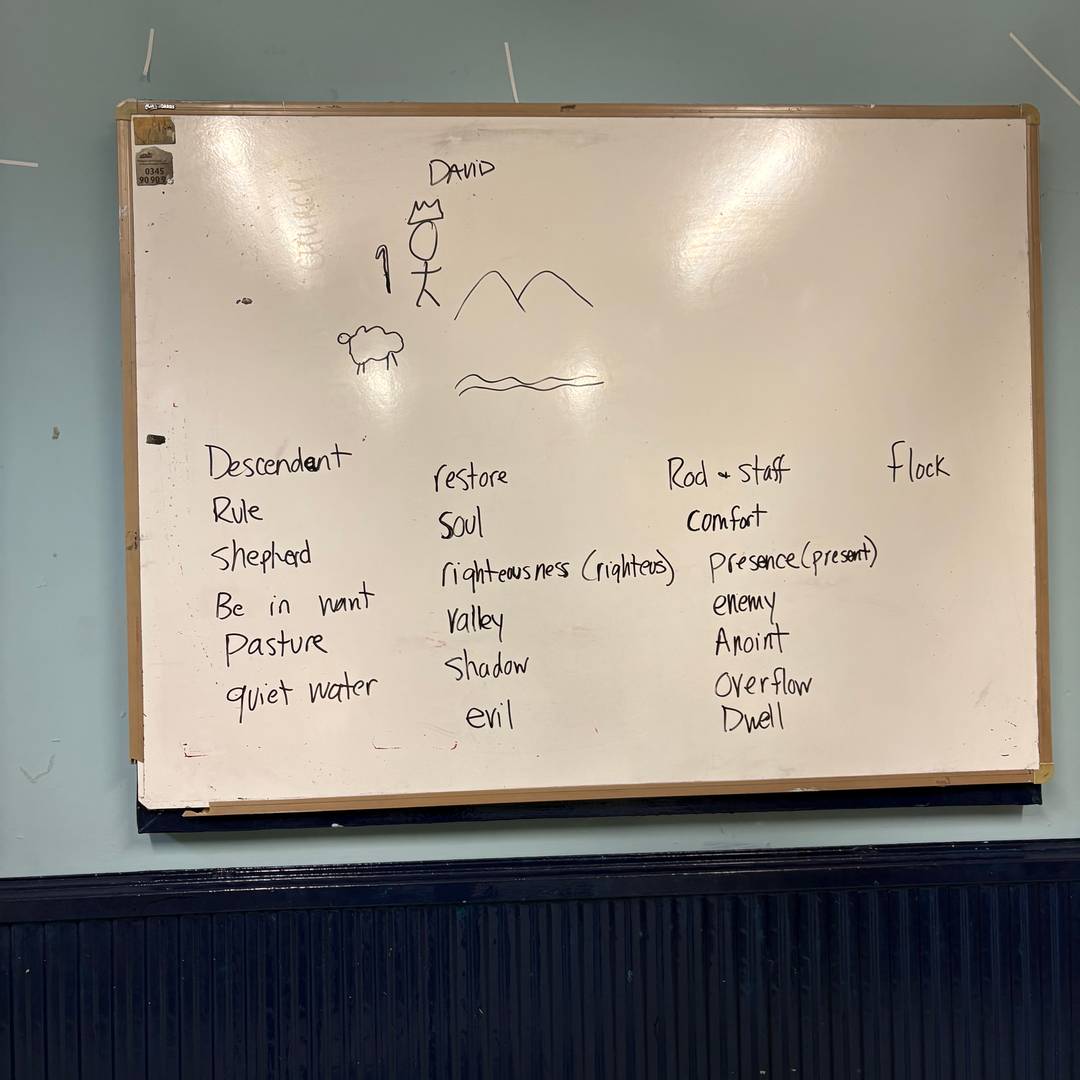 DAVID
Descendant
Rule
Shepherd
Be in want
Pasture
quiet water
restore
Soul
righteousness (righteous)
valley
shadow
evil
Rod + staff
comfort
presence (present)
enemy
Anoint
Overflow
Dwell
flock
0345